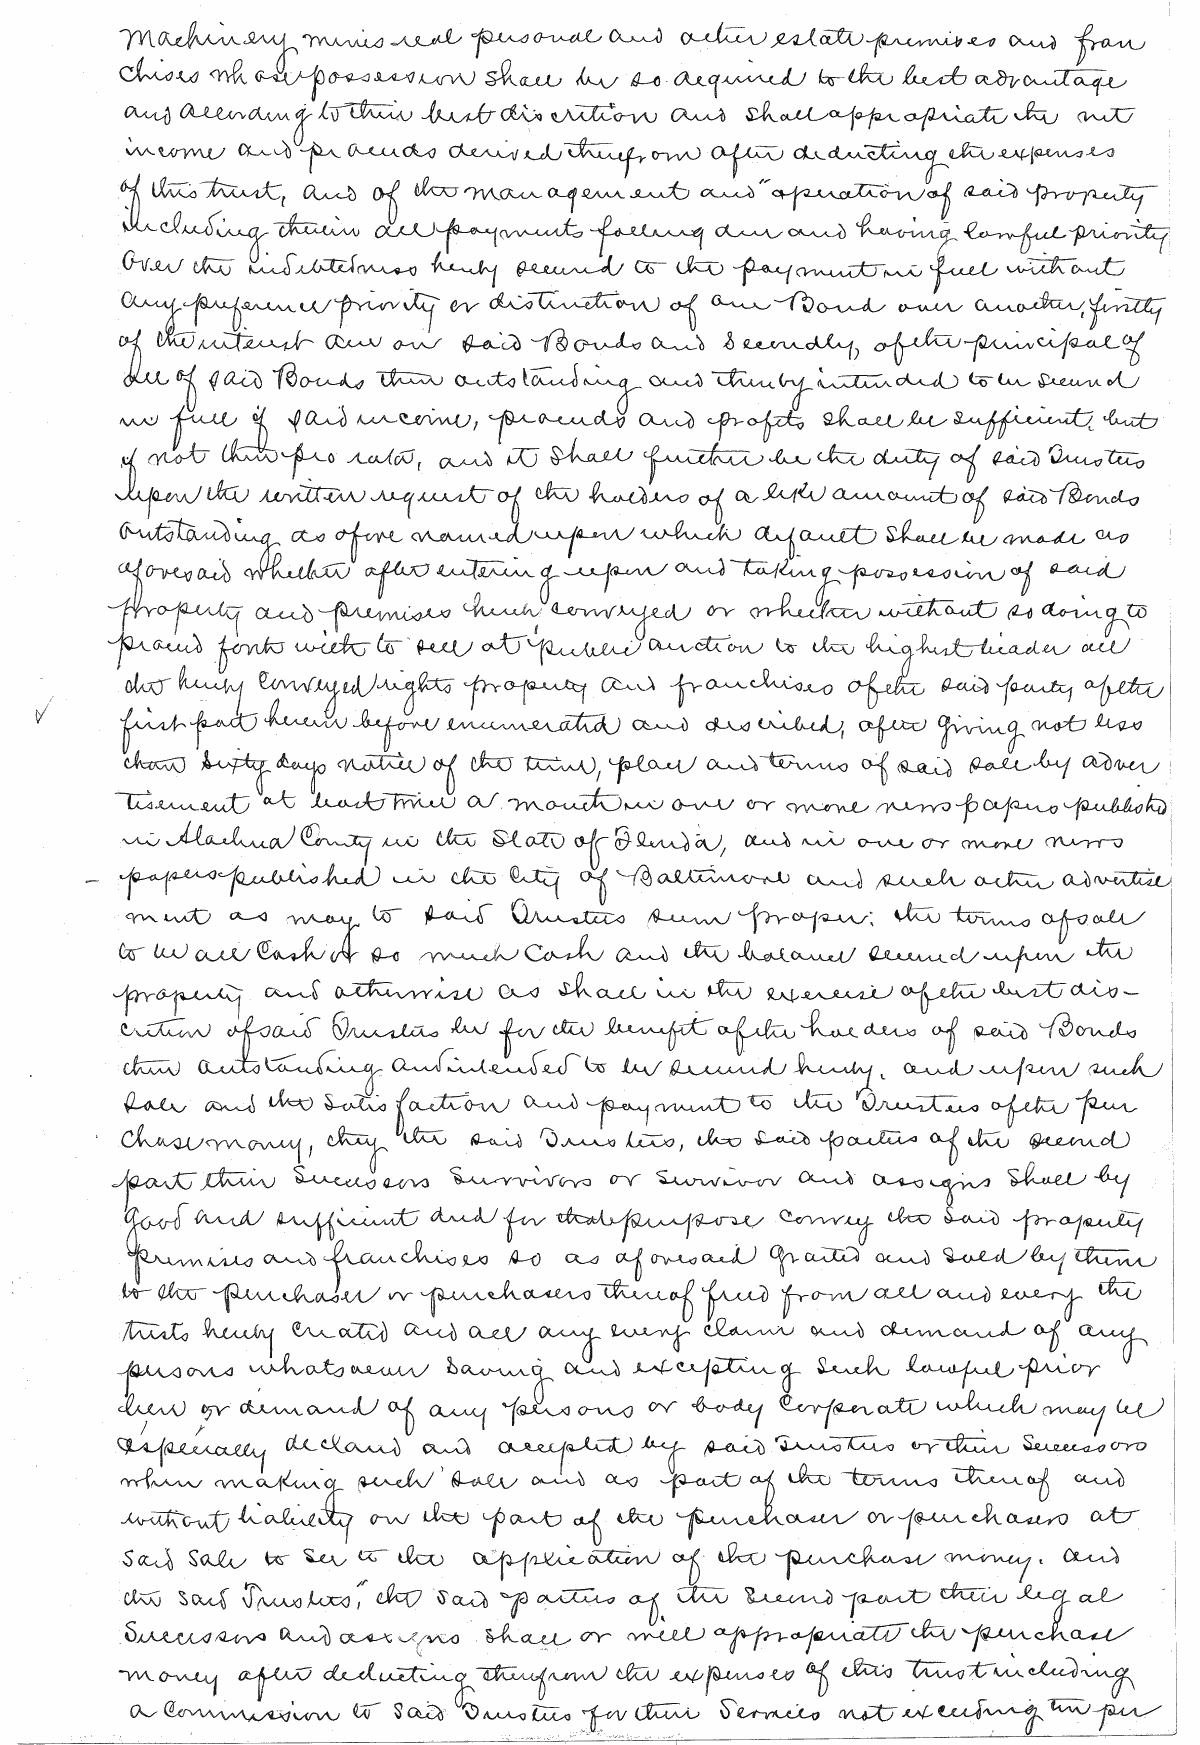 Machinery mines real personal and other estate premises and fran
chises whose possession shall be so acquired to the best advantage
and according to their best discretion and shall appropriate the net
income and proceeds derived therefrom after deducting the expenses
of this trust, and of the management and operation of said property
including therein all payments falling due and having lawful priority
over the indebtedness hereby secured to the payment in full without
any preference priority or distinction of one Bond over another, firstly
of the interest due on said Bonds and secondly, of the principal of
all of said Bonds then outstanding and thereby intended to be secured
in full if said income, proceeds and profits shall be sufficient, but
if not then pro rata, and it shall further be the duty of said Trustees
upon the written request of the holders of a like amount of said Bonds
outstanding as afore named upon which default shall be made as
aforesaid whether after entering upon and taking possession of said
property and premises herein conveyed or whether without so doing to
proceed forth with to sell at public auction to the highest bidder all
the hereby conveyed rights property and franchises of the said party of the
first part herein before enumerated and described, after giving not less
than sixty days notice of the time, place and terms of said sale by adver
tisement at least twice a month in one or more news papers published
in Alachua County in the State of Florida, and in one or more news
papers published in the City of Baltimore and such other advertise
ment as may to said Trustees seem proper; the terms of sale
to be all cash or so much cash and the balance secured upon the
property and otherwise as shall in the exercise of the best dis-
cretion of said Trustees be for the benefit of the holders of said Bonds
then outstanding and intended to be secured hereby. and upon such
sale and the satisfaction and payment to the Trustees of the pur
chase money, they the said Trustees, the said parties of the second
part their successors survivors or survivor and assigns shall by
good and sufficient deed for that purpose convey the said property
premises and franchises so as aforesaid granted and sold by them
to the purchaser or purchasers thereof freed from all and every the
trusts hereby created and all any every claim and demand of any
persons whatsoever saving and excepting such lawful prior
lien or demand of any persons or body corporate which may be
especially declared and accepted by said Trustees or their successors
when making such sale and as part of the terms thereof and
without liability on the part of the purchaser or purchasers at
said sale to see to the application of the purchase money. And
the said Trustees, the said parties of the second part their legal
successors and assigns shall or will appropriate the purchase
money after deducting therefrom the expenses of this trust including
a commission to said Trustees for their services not exceeding ten per